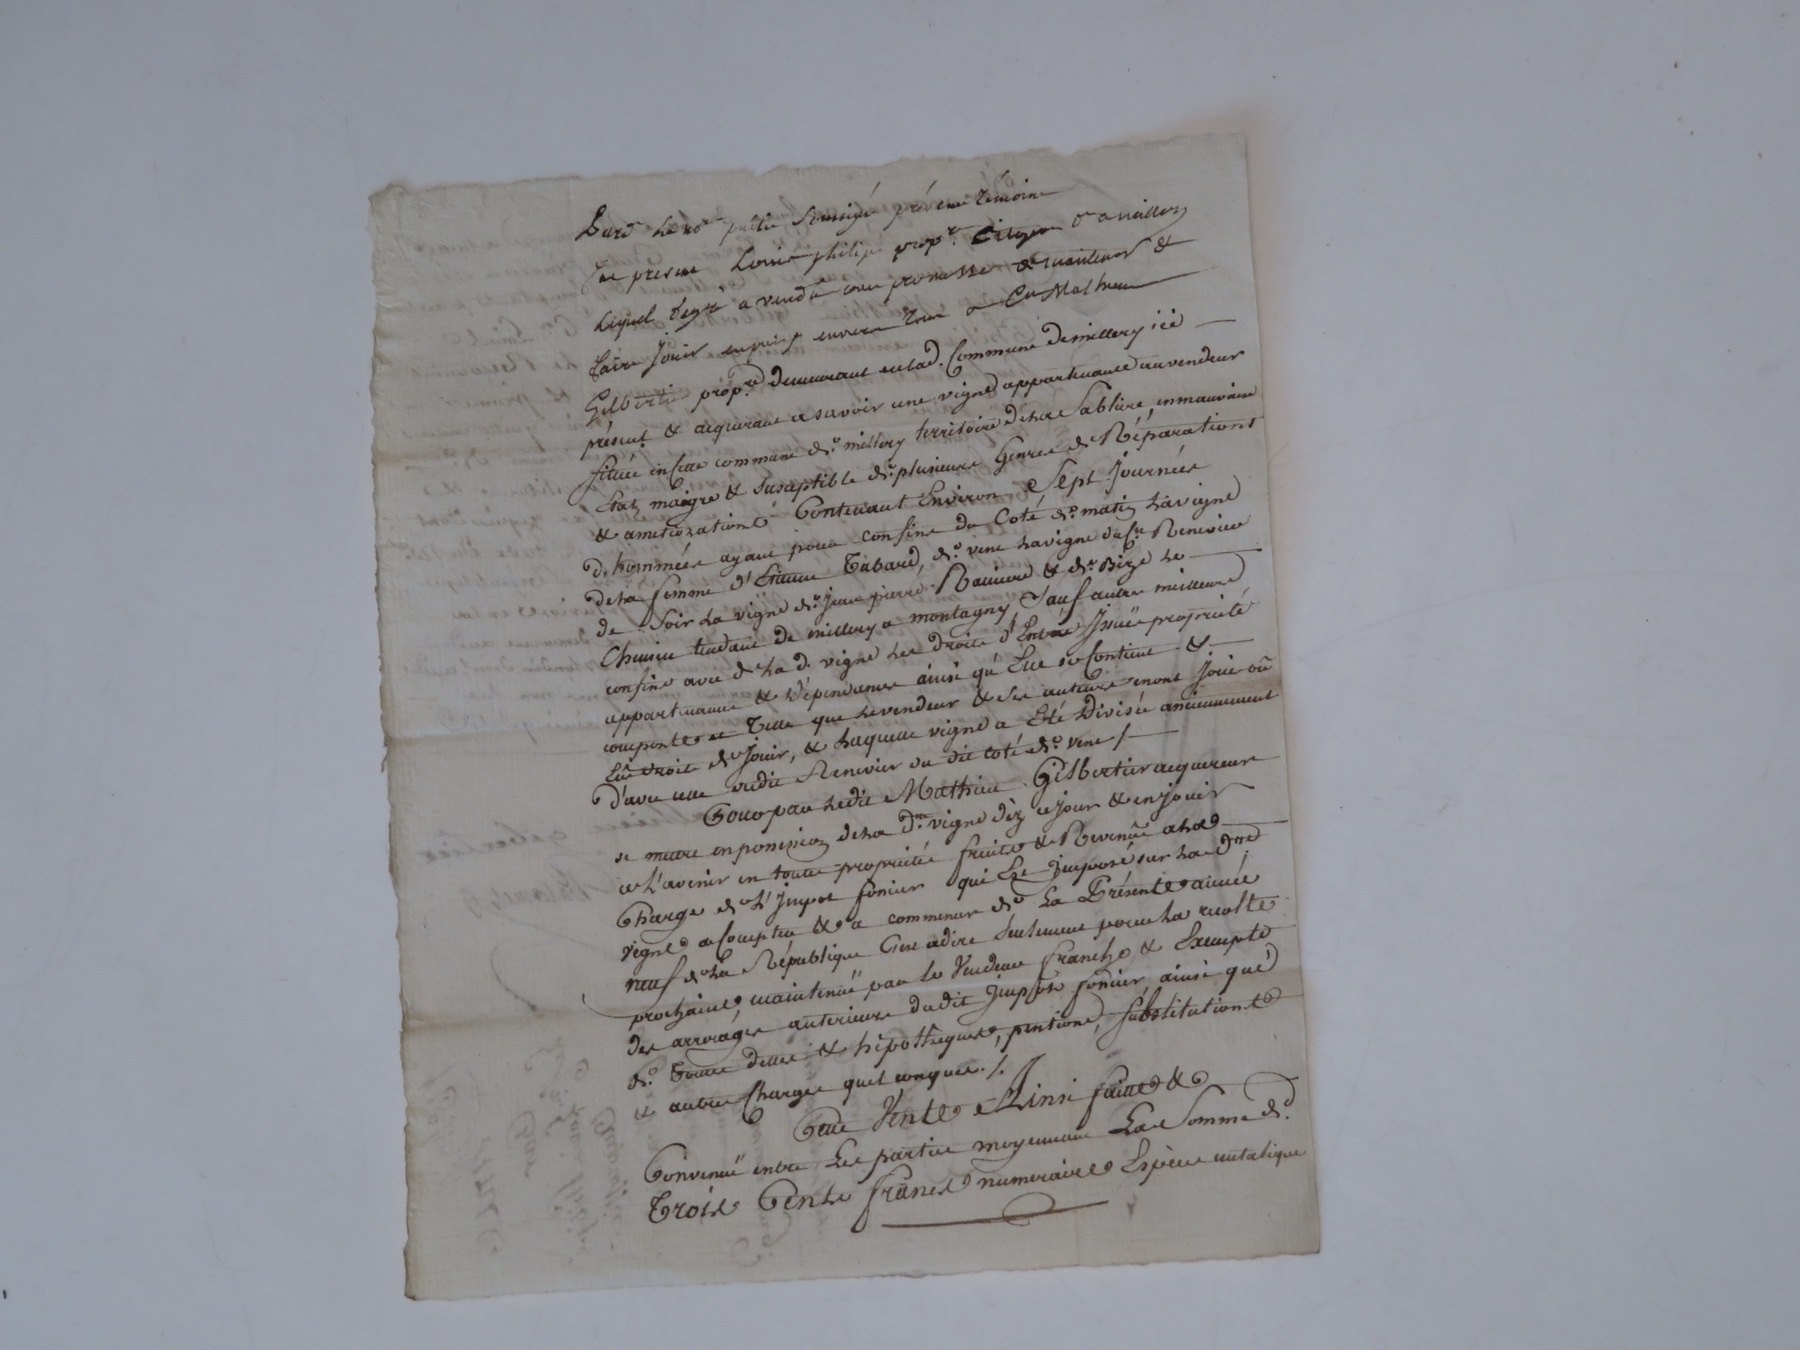 Pard. le no.re public soussigné présens témoins
fut present Louis philipe prop.re Citoyen d a millery
Lequel degré a vendu avec promesse de maintenir &
faire Jouir envers tous a Cn Mathieu
Gilbertier prop.re demeurant en lad. Commune de millery ici
présent & acquerant a savoir une vigne appartenance au vendeur
située en cette commune de millery territoire de la Sabliere, en mauvais
Etat, maigre & susceptible de plusieurs Genres de Réparations
& ameliorations Contenant Environ Sept Journées
d'hommées ayant pour confins du Coté de matin la vigne
de la femme d'Etienne Tabard, de vent la vigne du Cn Renevier
de Soir la vigne de Jean pierre & de Bize le
Chemin tendant de millery a montagny Sauf autres meilleurs
confins avec de la d. vigne les droits d'Entrée Issüe propriété
appartenance & dépendances ainsi qu'Elle se Contient &
comporte et Telle que le vendeur & ses auteurs en ont Joui ou
Eû droit de Jouir, & laquelle vigne a Eté divisée anciennement
d'avec celle dudit Renevier du dit coté de vent /
Pour par ledit Mathieu Gilbertier acquereur
se mettre en possession de la d.te vigne dèz ce jour & en jouir
a l'avenir en toute propriété fruits & Revenûs a la
Charge de l'Impot foncier qui Est Imposé sur la d.te
vigne a Compter & a commencer de La Présente année
neuf de la République C'est adire seulement pour la recolte
prochaine, maintenüe par le Vendeur franche & Exempte
des arrérages anterieurs dudit Impôt foncier, ainsi que
de Toutes dettes & hipothéques, pentions, substitutions
& autres Charges quelconques. /.
Cette Vente Ainsi faitte &
Convenuë entre Les parties moyennant La Somme de
Trois Cents francs numeraire Espèces metalique